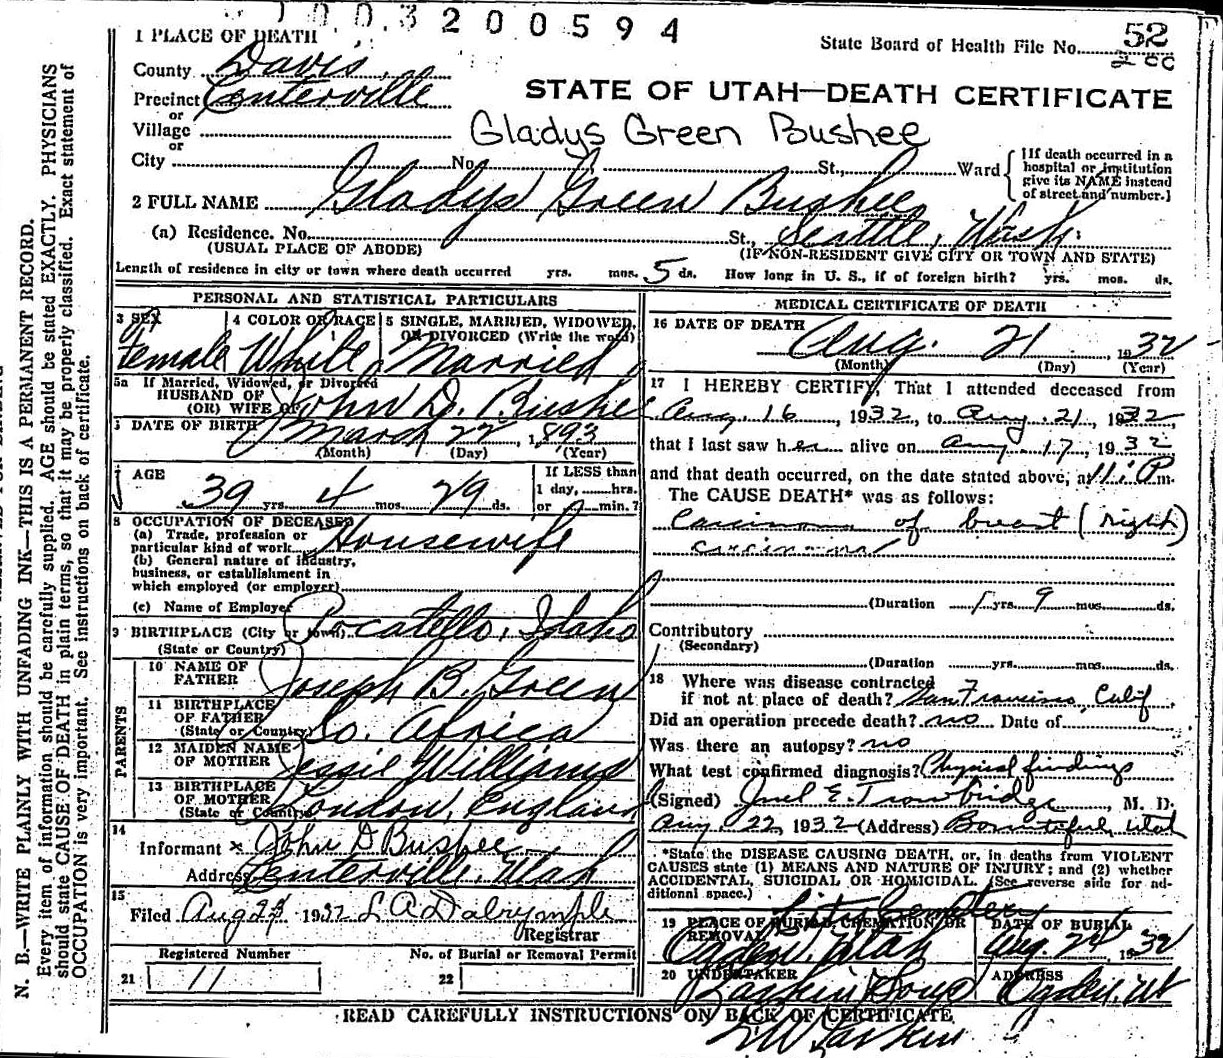 003200594
1 PLACE OF DEATH
State Board of Health File No. 52
200
County Davis,
STATE OF UTAH—DEATH CERTIFICATE
Precinct Centerville
or
Village
Gladys Green Bushee
or
City No. St., Ward
{If death occurred in a hospital or institution give its NAME instead of street and number.}
2 FULL NAME Gladys Green Bushee
(a) Residence. No. St., Seattle, Wash.
(USUAL PLACE OF ABODE) (IF NON-RESIDENT GIVE CITY OR TOWN AND STATE)
Length of residence in city or town where death occurred yrs. mos. 5 ds. How long in U. S., if of foreign birth? yrs. mos. ds.
PERSONAL AND STATISTICAL PARTICULARS
3 SEX 4 COLOR OR RACE 5 SINGLE, MARRIED, WIDOWED, OR DIVORCED (Write the word)
Female White Married
5a If Married, Widowed, or Divorced
HUSBAND OF
(OR) WIFE OF John D. Bushee
DATE OF BIRTH March 22, 1893
(Month) (Day) (Year)
AGE If LESS than
39 yrs. 4 mos. 29 ds. 1 day, hrs.
or min.?
8 OCCUPATION OF DECEASED
(a) Trade, profession or
particular kind of work Housewife
(b) General nature of industry,
business, or establishment in
which employed (or employer)
(c) Name of Employer
9 BIRTHPLACE (City or town) Pocatello, Idaho
(State or Country)
PARENTS
10 NAME OF
FATHER Joseph B. Green
11 BIRTHPLACE
OF FATHER So. Africa
(State or Country)
12 MAIDEN NAME
OF MOTHER Jessie Williams
13 BIRTHPLACE
OF MOTHER London, England
(State or Country)
14
Informant x John D Bushee
Address Centerville, Utah
15
Filed Aug 1932 L A Dalrymple
Registrar
Registered Number No. of Burial or Removal Permit
21 11 22
MEDICAL CERTIFICATE OF DEATH
16 DATE OF DEATH Aug. 21, 1932
(Month) (Day) (Year)
17 I HEREBY CERTIFY, That I attended deceased from
Aug. 16, 1932, to Aug. 21, 1932,
that I last saw her alive on Aug 17, 1932
and that death occurred, on the date stated above, at 11: P m.
The CAUSE DEATH* was as follows:
Carcinoma of breast (right)
carcinoma
(Duration 1 yrs. 9 mos. ds.
Contributory
(Secondary)
(Duration yrs. mos. ds.
18 Where was disease contracted
if not at place of death? San Francisco, Calif
Did an operation precede death? no Date of
Was there an autopsy? no
What test confirmed diagnosis? Physical findings
(Signed) E. Trowbridge, M. D.
Aug. 22, 1932 (Address) Bountiful, Utah
*State the DISEASE CAUSING DEATH, or, in deaths from VIOLENT
CAUSES state (1) MEANS AND NATURE OF INJURY; and (2) whether
ACCIDENTAL, SUICIDAL OR HOMICIDAL. (See reverse side for ad-
ditional space.)
19 PLACE OF BURIAL, CREMATION OR REMOVAL DATE OF BURIAL
City Cemetery
Ogden, Utah Aug. 24 1932
20 UNDERTAKER ADDRESS
Larkin & Sons Ogden, Ut
READ CAREFULLY INSTRUCTIONS ON BACK OF CERTIFICATE
Larkin
N. B.—WRITE PLAINLY WITH UNFADING INK—THIS IS A PERMANENT RECORD.
Every item of information should be carefully supplied. AGE should be stated EXACTLY. PHYSICIANS
should state CAUSE OF DEATH in plain terms, so that it may be properly classified. Exact statement of
OCCUPATION is very important. See instructions on back of certificate.